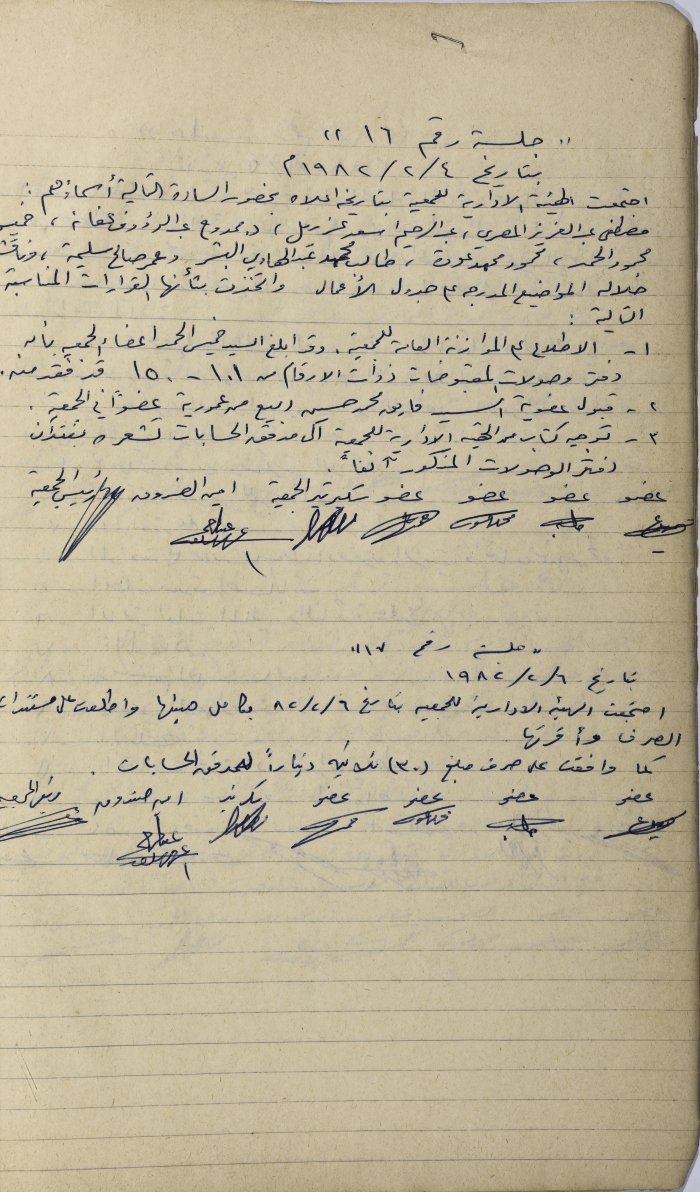 " جلسة رقم ١٦ "
بتاريخ ٤/٢/١٩٨٢م
اجتمعت الهيئة الادارية للجمعية بتاريخ اعلاه بحضور السادة التالية أسماؤهم :
مصطفى عبد العزيز المصري ، عبد الرحيم اسعد ، د. ممدوح عبد الرؤوف عفانة ، خميس
محمود الحمد ، محمود محمد عودة ، طالب محمد عبد الهادي البشر وعمر صالح سليمة ، وناقشت
خلاله المواضيع المدرجه على جدول الأعمال واتخذت بشأنها القرارات المناسبة
التالية :
١ - الاطلاع على الموازنة العامة للجمعية . وقد ابلغ السيد خميس الحمد اعضاء الجمعيه بأنه
دفتر وصولات المقبوضات ذوات الارقام من ١٠١ - ١٥٠ قد فقد منه .
٢ - قبول عضوية السيد فاروق محمد حسن ربيع من عمورية عضواً في الجمعية .
٣ - توجيه كتاب من الهيئه الادارية للجمعية الى مدقق الحسابات تشعره بفقدان
دفتر الوصولات المذكور آنفاً .
عضو عضو عضو عضو سكرتير الجمعية امين الصندوق رئيس الجمعية
" جلسة رقم ١٧ "
بتاريخ ٦/٢/١٩٨٢
اجتمعت الهيئة الادارية للجمعيه بتاريخ ٦/٢/٨٢ بكامل هيئتها واطلعت على مستندات
الصرف وأقرتها
كما وافقت على صرف مبلغ (٣٠) ثلاثين ديناراً لمدقق الحسابات .
عضو عضو عضو عضو سكرتير امين صندوق رئيس الجمعيه